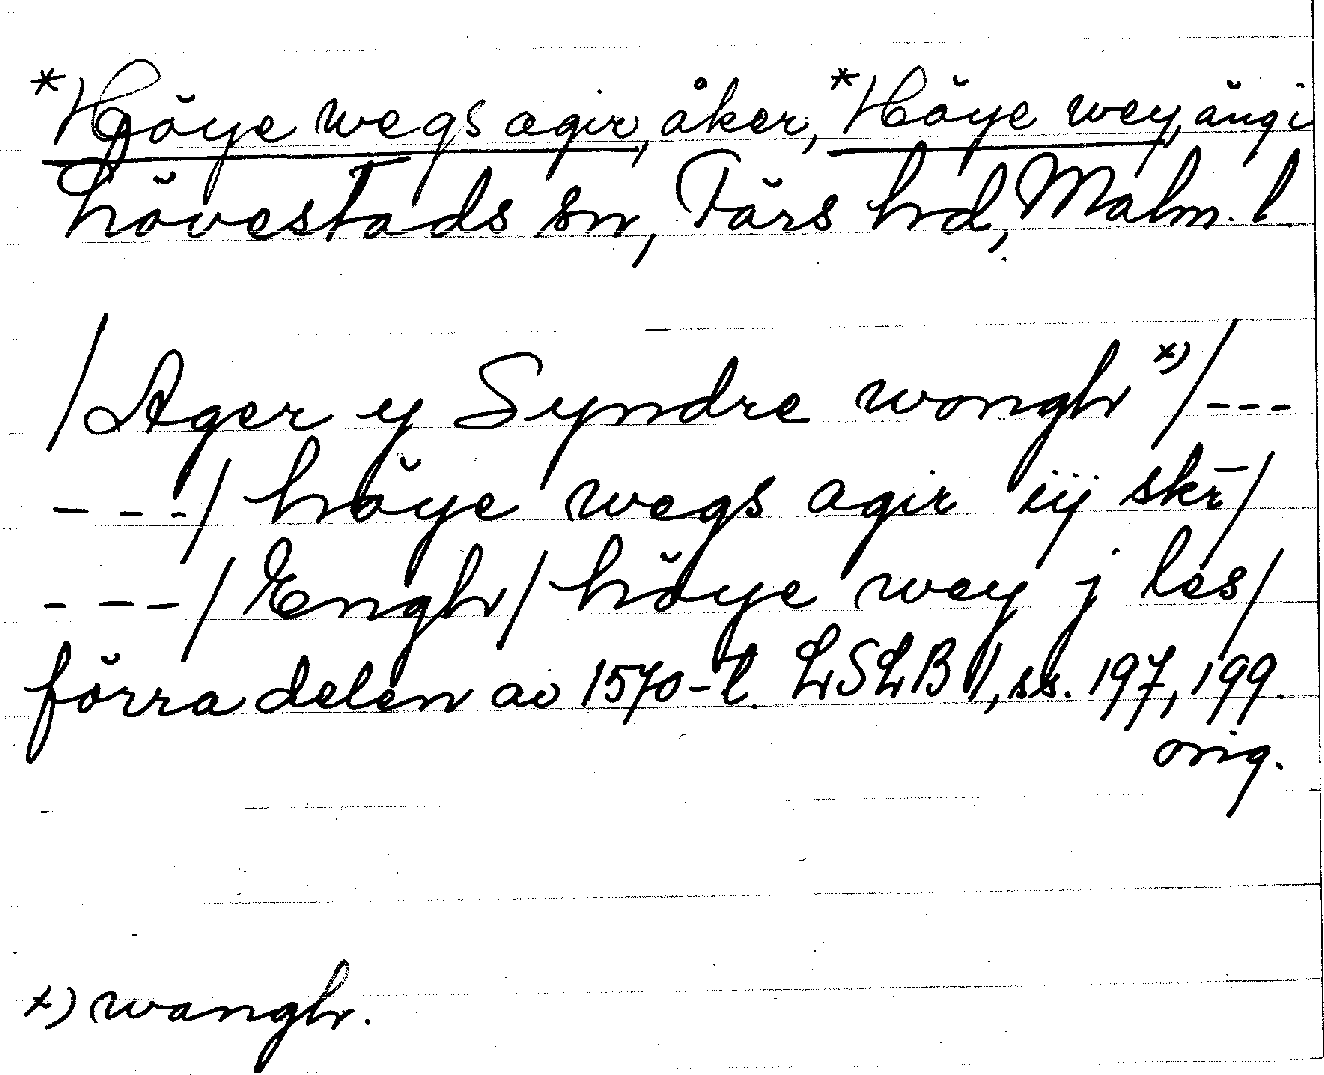 *Höye wegs agir, åker, *Höye wey, äng i
hövestads sn, Färs hd, Malm. l
/Ager y Syndre wongh x)/---
---/ höye wegs agir iij skr̄/
---/Engh/ höye wey j les/
förra delen av 1570-t. LSLB I, ss. 197, 199.
orig.
x) wangh.